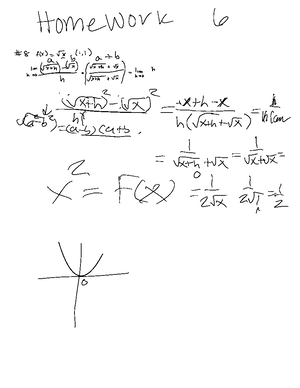 Homework 6
#8 f(x) = √x (1,1)
a b a + b
lim h→0 (√x+h) - (√x) / h · (√x+h + √x / √x+h + √x) = lim h→0
(√x+h)² - (√x)² / h = x + h - x / h(√x+h + √x) =
(a² - b²) = (a-b)(a+b)
= 1 / √x+h + √x = 1 / √x + √x =
0
x² = F(x) = 1 / 2√x 1 / 2√1 = 1 / 2
0